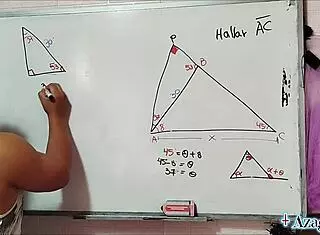 Hallar AC
37
30
53
P
53
B
30
8
45
A
x
C
45 = θ + 8
45-8 = θ
37 = θ
α
α+θ
+Azag